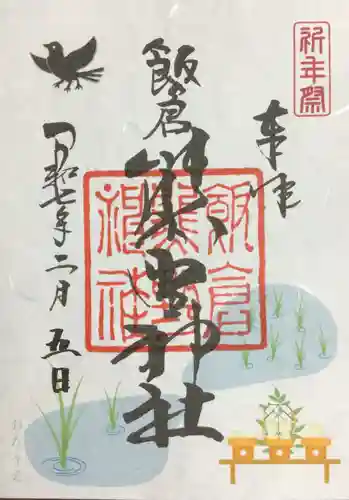 祈年祭
奉拝
飯倉
熊野神社
飯倉熊野神社
令和七年二月五日